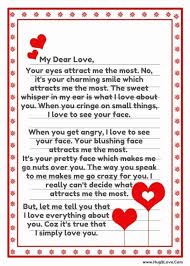 My Dear Love,
Your eyes attract me the most. No,
it's your charming smile which
attracts me the most. The sweet
whisper in my ear is what I love about
you. When you cringe on small things,
I love to see your face.
When you got angry, I love to see
your face. Your blushing face
attracts me the most.
It's your pretty face which makes me
go nuts over you. The way you speak
to me makes me go crazy for you. I
really can't decide what
attracts me the most.
But, let me tell you that
I love everything about
you. Coz it's true that
I simply love you.
www.HugILove.Com